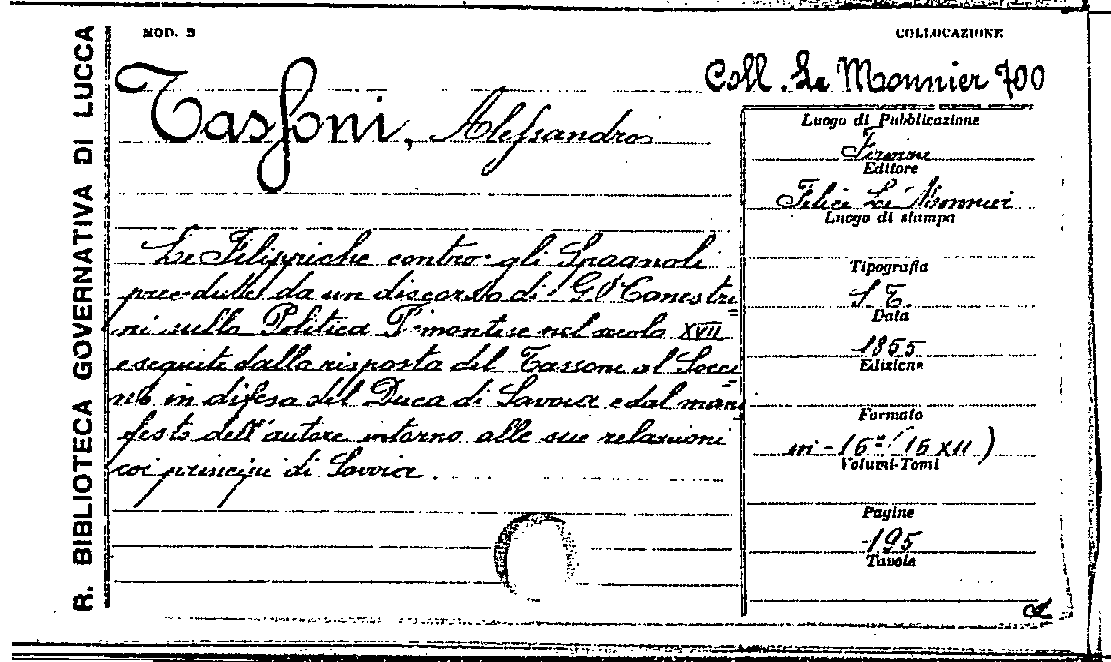 R. BIBLIOTECA GOVERNATIVA DI LUCCA
MOD. B
COLLOCAZIONE
Coll. Le Monnier 700
Tassoni, Alessandro
Le Filippiche contro gli Spagnoli
precedute da un discorso di G. Canestri
ni sulla Politica Pimontese nel secolo XVII
e seguite dalla risposta del Tassoni al Socci
no in difesa del Duca di Savoia e dal mani
festo dell'autore intorno alle sue relazioni
coi principi di Savoia.
Luogo di Pubblicazione
Firenze
Editore
Felice Le Monnier
Luogo di stampa
Tipografia
S. T.
Data
1855
Edizione
Formato
in-16° (16 XII)
Volumi-Tomi
Pagine
195
Tavole